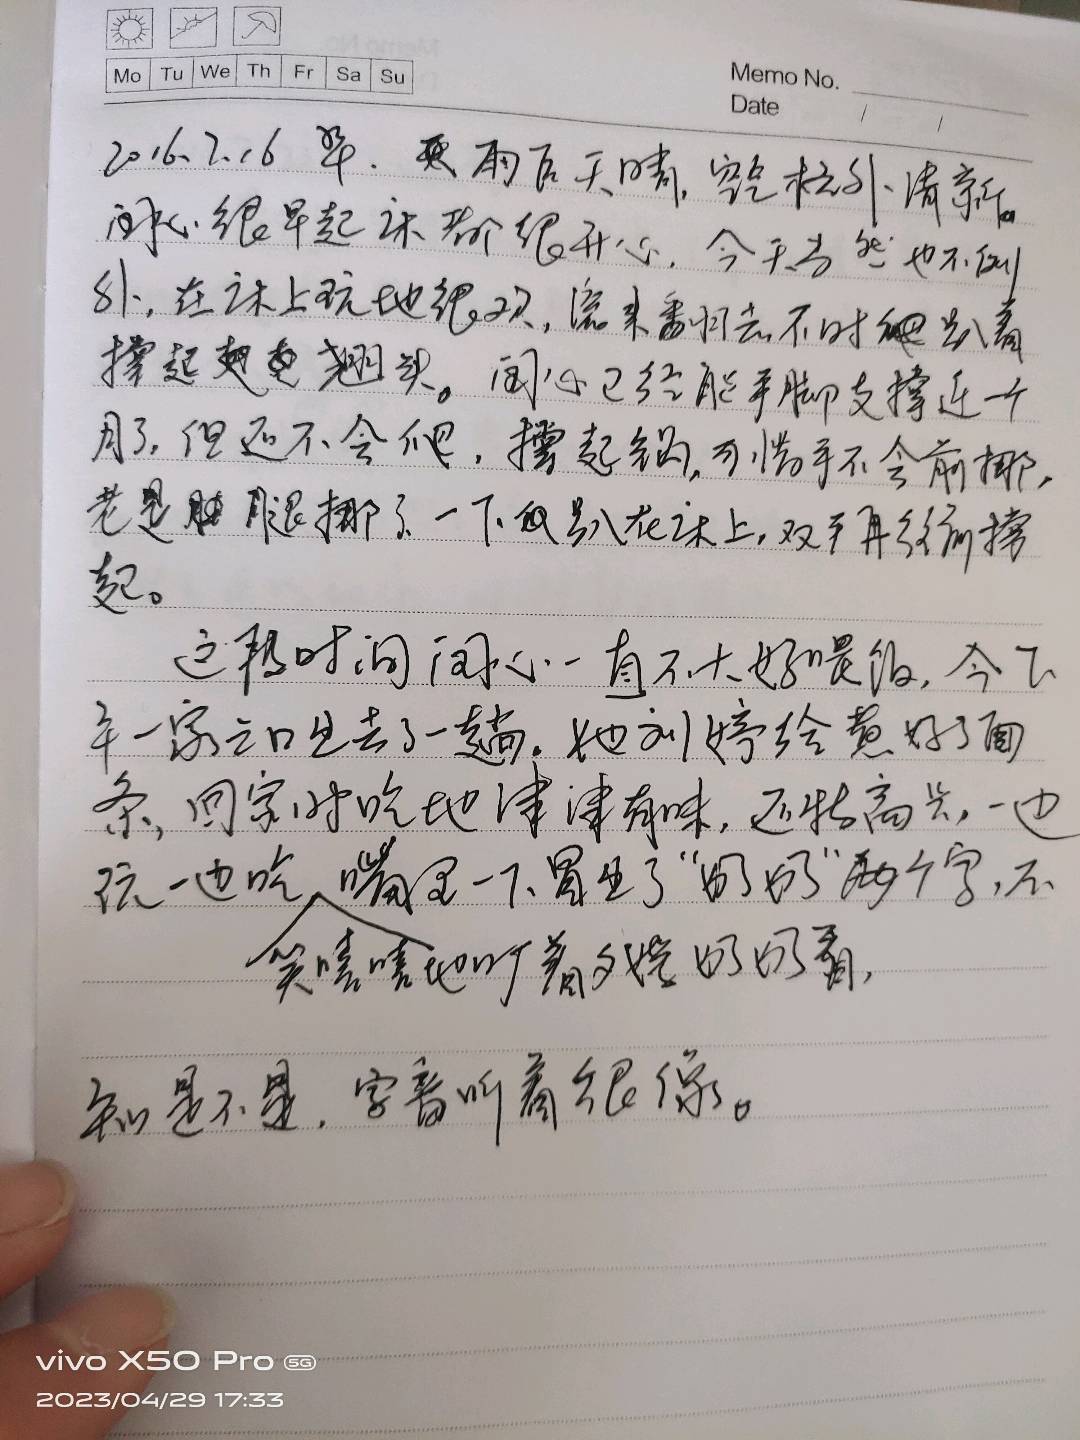 Mo Tu We Th Fr Sa Su
Memo No.
Date / /
2016.7.16 雨后天晴，空气格外清新。
闰心很早起床都很开心，今天当然也不例
外，在床上玩地很欢，滚来番归去不时趴着
撑起翘头。闰心已经能手脚支撑近一个
月了，但还不会爬，撑起锅，可惜手不会前挪，
老是腿挪了一下趴在床上，双手再往前撑
起。
这段时间闰心一直不大好喂饭，今下
午一家三口出去了一趟。她刘婷给煮好了面
条，回家时吃地津津有味，还特高兴，一边
玩一边吃，嘴里一下冒出了“奶奶”两个字，不
笑嘻嘻地叮着奶奶看，
知是不是，字音听着很像。
vivo X50 Pro 5G
2023/04/29 17:33